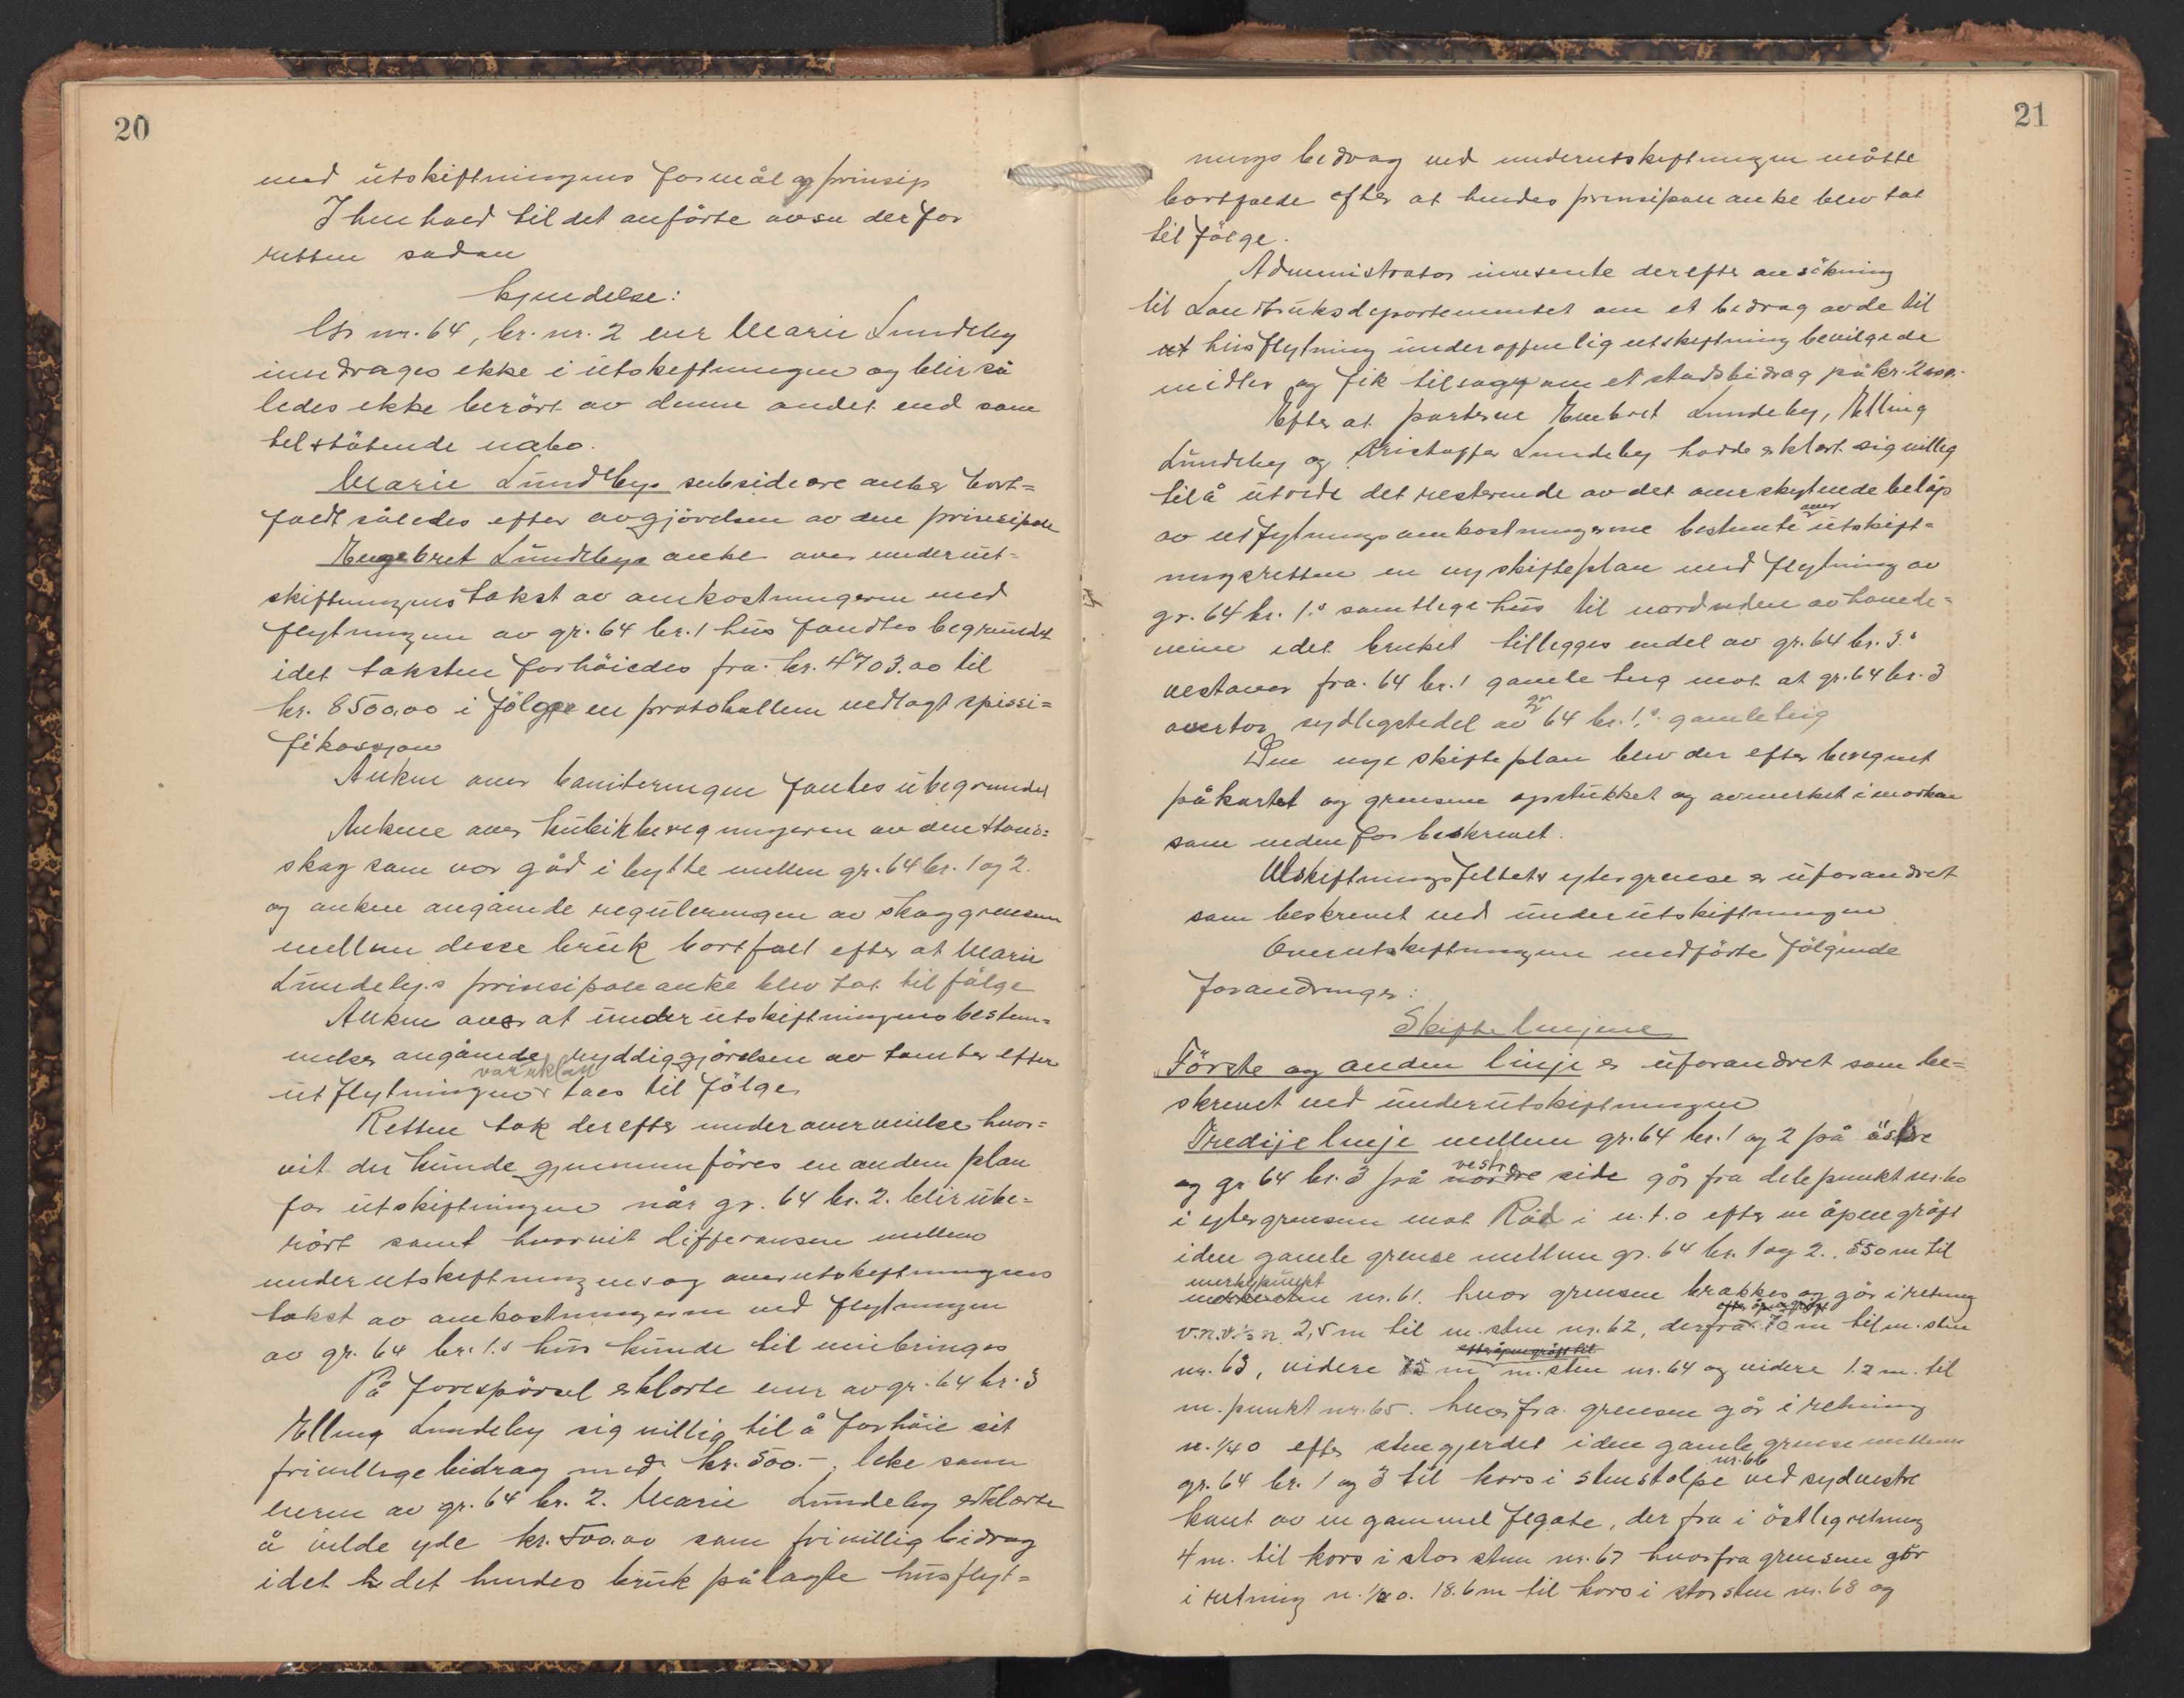 20
med utskiftningens formål og prinsip
I henhold til det anførte avsa derfor
retten sådan
kjendelse:
Gr. nr. 64, br. nr. 2 eier Marie Lundeby
inndrages ikke i utskiftningen og blir så
ledes ikke berört av denne andet end som
tilstötende nabo.
Marie Lundebys subsidiære anker bort=
faldt således efter avgjörelsen av den prinsipale
Engebret Lundebys anke over underut=
skiftningens takst av omkostningerne med
flytningen av gr. 64 br. 1 hus fandtes begrundet
idet taksten forhöiedes fra kr. 4703.00 til
kr. 8500,00 i fölge en protokollen vedlagt spissi=
fikassjon
Anken over boniteringen fantes ubegrundet
Ankene over kubikberegningen av den
skog som var gåd i bytte mellem gr. 64 br. 1 og 2.
og anken angående reguleringen av skoggrensen
mellem disse bruk bortfalt efter at Marie
Lundeby.s prinsipale anke blev tat til fölge
Anken over at underutskiftningens bestem=
melser angående ryddiggjörelsen av tomter efter
utflytningen var uklar taes til fölge
Retten tok derefter under overveielse hvor=
vit der kunde gjennemföres en anden plan
for utskiftningen når gr. 64 br. 2. blir ube=
rört samt hvorvit differansen mellem
underutskiftningens og overutskiftningens
takst av omkostningerne ved flytningen
av gr. 64 br. 1.s hus kunde til veiebringes
På forespörsel erklærte eier av gr. 64 br. 3
Elling Lundeby sig villig til å forhöie sit
frivillige bidrag med kr. 500.-, like som
eieren av gr. 64 br. 2. Marie Lundeby erklærte
å vilde yde kr. 500.00 som frivillig bidrag
idet det hendes bruk pålagte husflyt=
21
nings bedrag ved underutskiftningen måtte
bortfalde efter at hendes prinsipale anke blev tat
til fölge.
Administrator innsente derefter ansökning
til Landbruksdepartementet om et bedrag av de til
husflytning under offenlig utskiftning bevilgede
midler og fik tilsagn om et statsbidrag på kr. 2000.-
Efter at parterne Embret Lundeby, Elling
Lundeby og Kristoffer Lundeby hadde erklært sig villig
til å utrede det resterende av det overskytende belöp
av utflytningsomkostningerne bestemte over utskift=
ningsretten en ny skifteplan med flytning av
gr. 64 br. 1.s samtlige hus til nordsiden av hovede=
veien idet bruket tillegges endel av gr. 64 br. 3.s
vestover fra 64 br. 1 gamle teig mot at gr. 64 br. 3
overtar sydligste del av gr 64 br. 1.s gamle teig
Den nye skifteplan blev der efter beregnet
på kartet og grensene opstukket og avmerket i marken
som neden for beskrevet.
Utskiftningsfeltets ytergrense er uforandret
som beskrevet ved underutskiftningen
Overutskiftningen medförte fölgende
forandringer:
Skiftelinjene
Förste og anden linje er uforandret som be=
skrevet ved underutskiftningen
Tredije linje mellem gr. 64 br. 1 og 2 på östre
og gr 64 br. 3 på vestre side går fra delepunkt nr. 60
i ytergrensen mot Röd i n.t.o efter en åpen gröft
i den gamle grense mellem gr. 64 br. 1 og 2. 550 m til
merkepunkt nr. 61. hvor grensen brækkes og går i retning
v.n.v.½n 2,5 m til m. sten nr. 62, derfra efter åpen gröft 70 m til m. sten
efter åpen gröft til
nr. 63, videre 15 m m. sten nr. 64 og videre 1.2 m. til
m. punkt nr. 65. hvor fra grensen går i retning
n. ¼ o efter stengjerdet i den gamle grense mellem
gr. 64 br. 1 og 3 til kors i stenstolpe nr. 66 ved sydvestre
kant av en gammel fegate, der fra i östlig retning
4 m. til kors i stor sten nr. 67 hvorfra grensen går
i retning n. ½ o. 18.6 m til kors i stor sten nr. 68 og